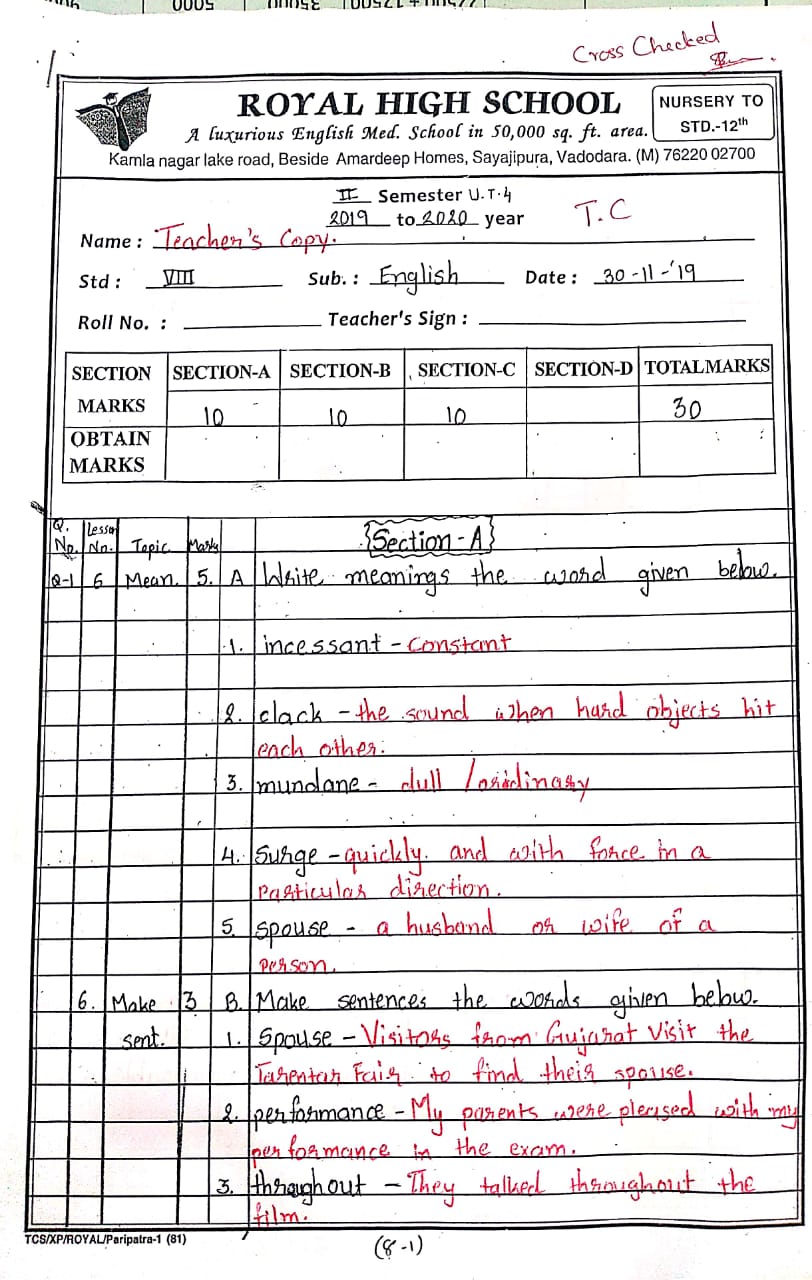 5000
35000
Cross Checked
ROYAL HIGH SCHOOL
NURSERY TO
STD.-12th
A luxurious English Med. School in 50,000 sq. ft. area.
Kamla nagar lake road, Beside Amardeep Homes, Sayajipura, Vadodara. (M) 76220 02700
II Semester U.T.4
2019 to 2020 year
T.C
Name : Teacher's Copy.
Std : VIII Sub. : English Date : 30-11-'19
Roll No. : Teacher's Sign :
SECTION SECTION-A SECTION-B SECTION-C SECTION-D TOTAL MARKS
MARKS 10 10 10 30
OBTAIN
MARKS
Q. No. Lesson No. Topic Marks {Section-A}
Q-1 6 Mean. 5. A Write meanings the word given below.
1. incessant - Constant
2. clack - the sound when hard objects hit
each other.
3. mundane - dull / oridinary
4. Surge - quickly. and with force in a
particular direction.
5. spouse - a husband or wife of a
person.
6. Make 3 B. Make sentences the words given below.
sent. 1. Spouse - Visitors from Gujarat Visit the
Tarentar Fair to find their spouse.
2. performance - My parents were pleased with my
performance in the exam.
3. throughout - They talked throughout the
film.
TCS/XP/ROYAL/Paripatra-1 (81)
(8-1)